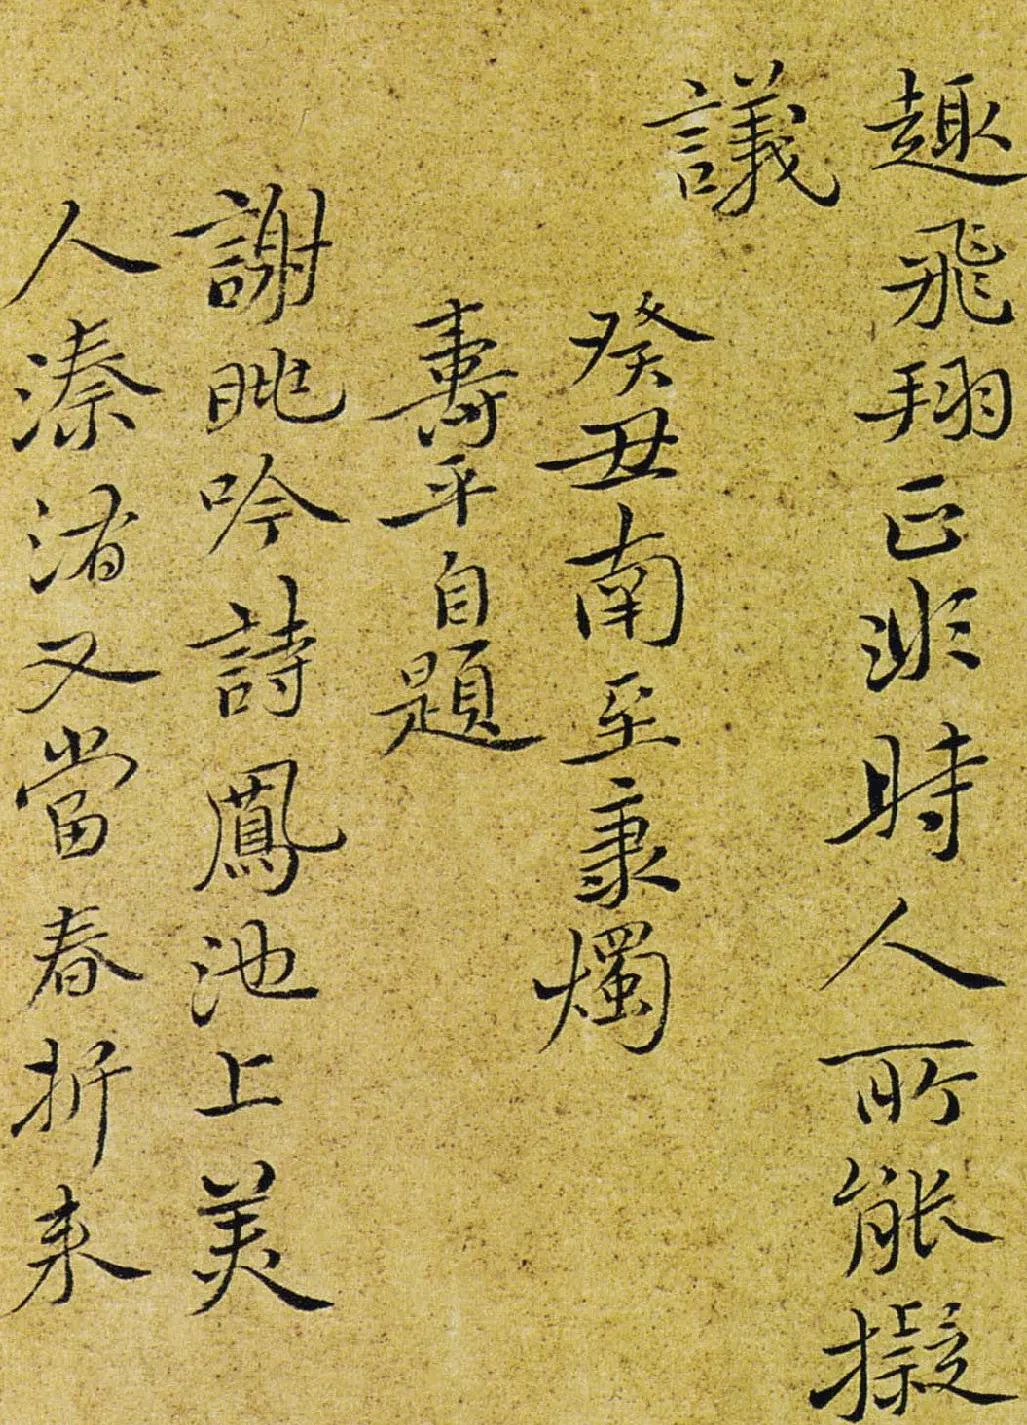 趣飛翔正非時人所能擬
議
癸丑南至秉燭
壽平自題
謝眺吟詩鳳池上美
人溱洧又當春折来